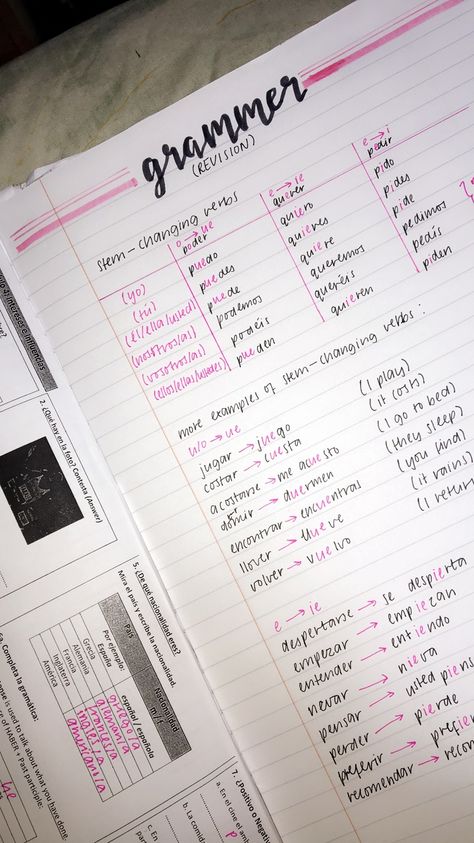 grammer
(REVISION)
stem-changing verbs
o → ue e → ie e → i
poder querer pedir
(yo) puedo quiero pido
(tú) puedes quieres pides
(él/ella/usted) puede quiere pide
(nosotros/as) podemos queremos pedimos
(vosotros/as) podéis queréis pedís
(ellos/ellas/ustedes) pueden quieren piden
more examples of stem-changing verbs:
u/o → ue
jugar → juego (I play)
costar → cuesta (it costs)
acostarse → me acuesto (I go to bed)
dormir → duermen (they sleep)
encontrar → encuentras (you find)
llover → llueve (it rains)
volver → vuelvo (I return
e → ie
despertarse → se despierta
empezar → empiezan
entender → entiendo
nevar → nieva
pensar → usted piens
perder → pierde
preferir → prefier
recomendar → recom
2. ¿Qué hay en la foto? Contesta (Answer)
5. ¿De qué nacionalidad eres?
Mira el país y escribe la nacionalidad.
País Nacionalidad
m / f
Por ejemplo:
España español / española
Grecia griego/a
Alemania alemán/a
Francia francés/a
Inglaterra inglés/a
América americano/a
6a. Completa la gramática:
ense is used to talk about what you have done.
e of HABER + Past participle:
he
7. ¿Positivo o Negativ
a. En el cine el amb
p
b. La comida
c. En